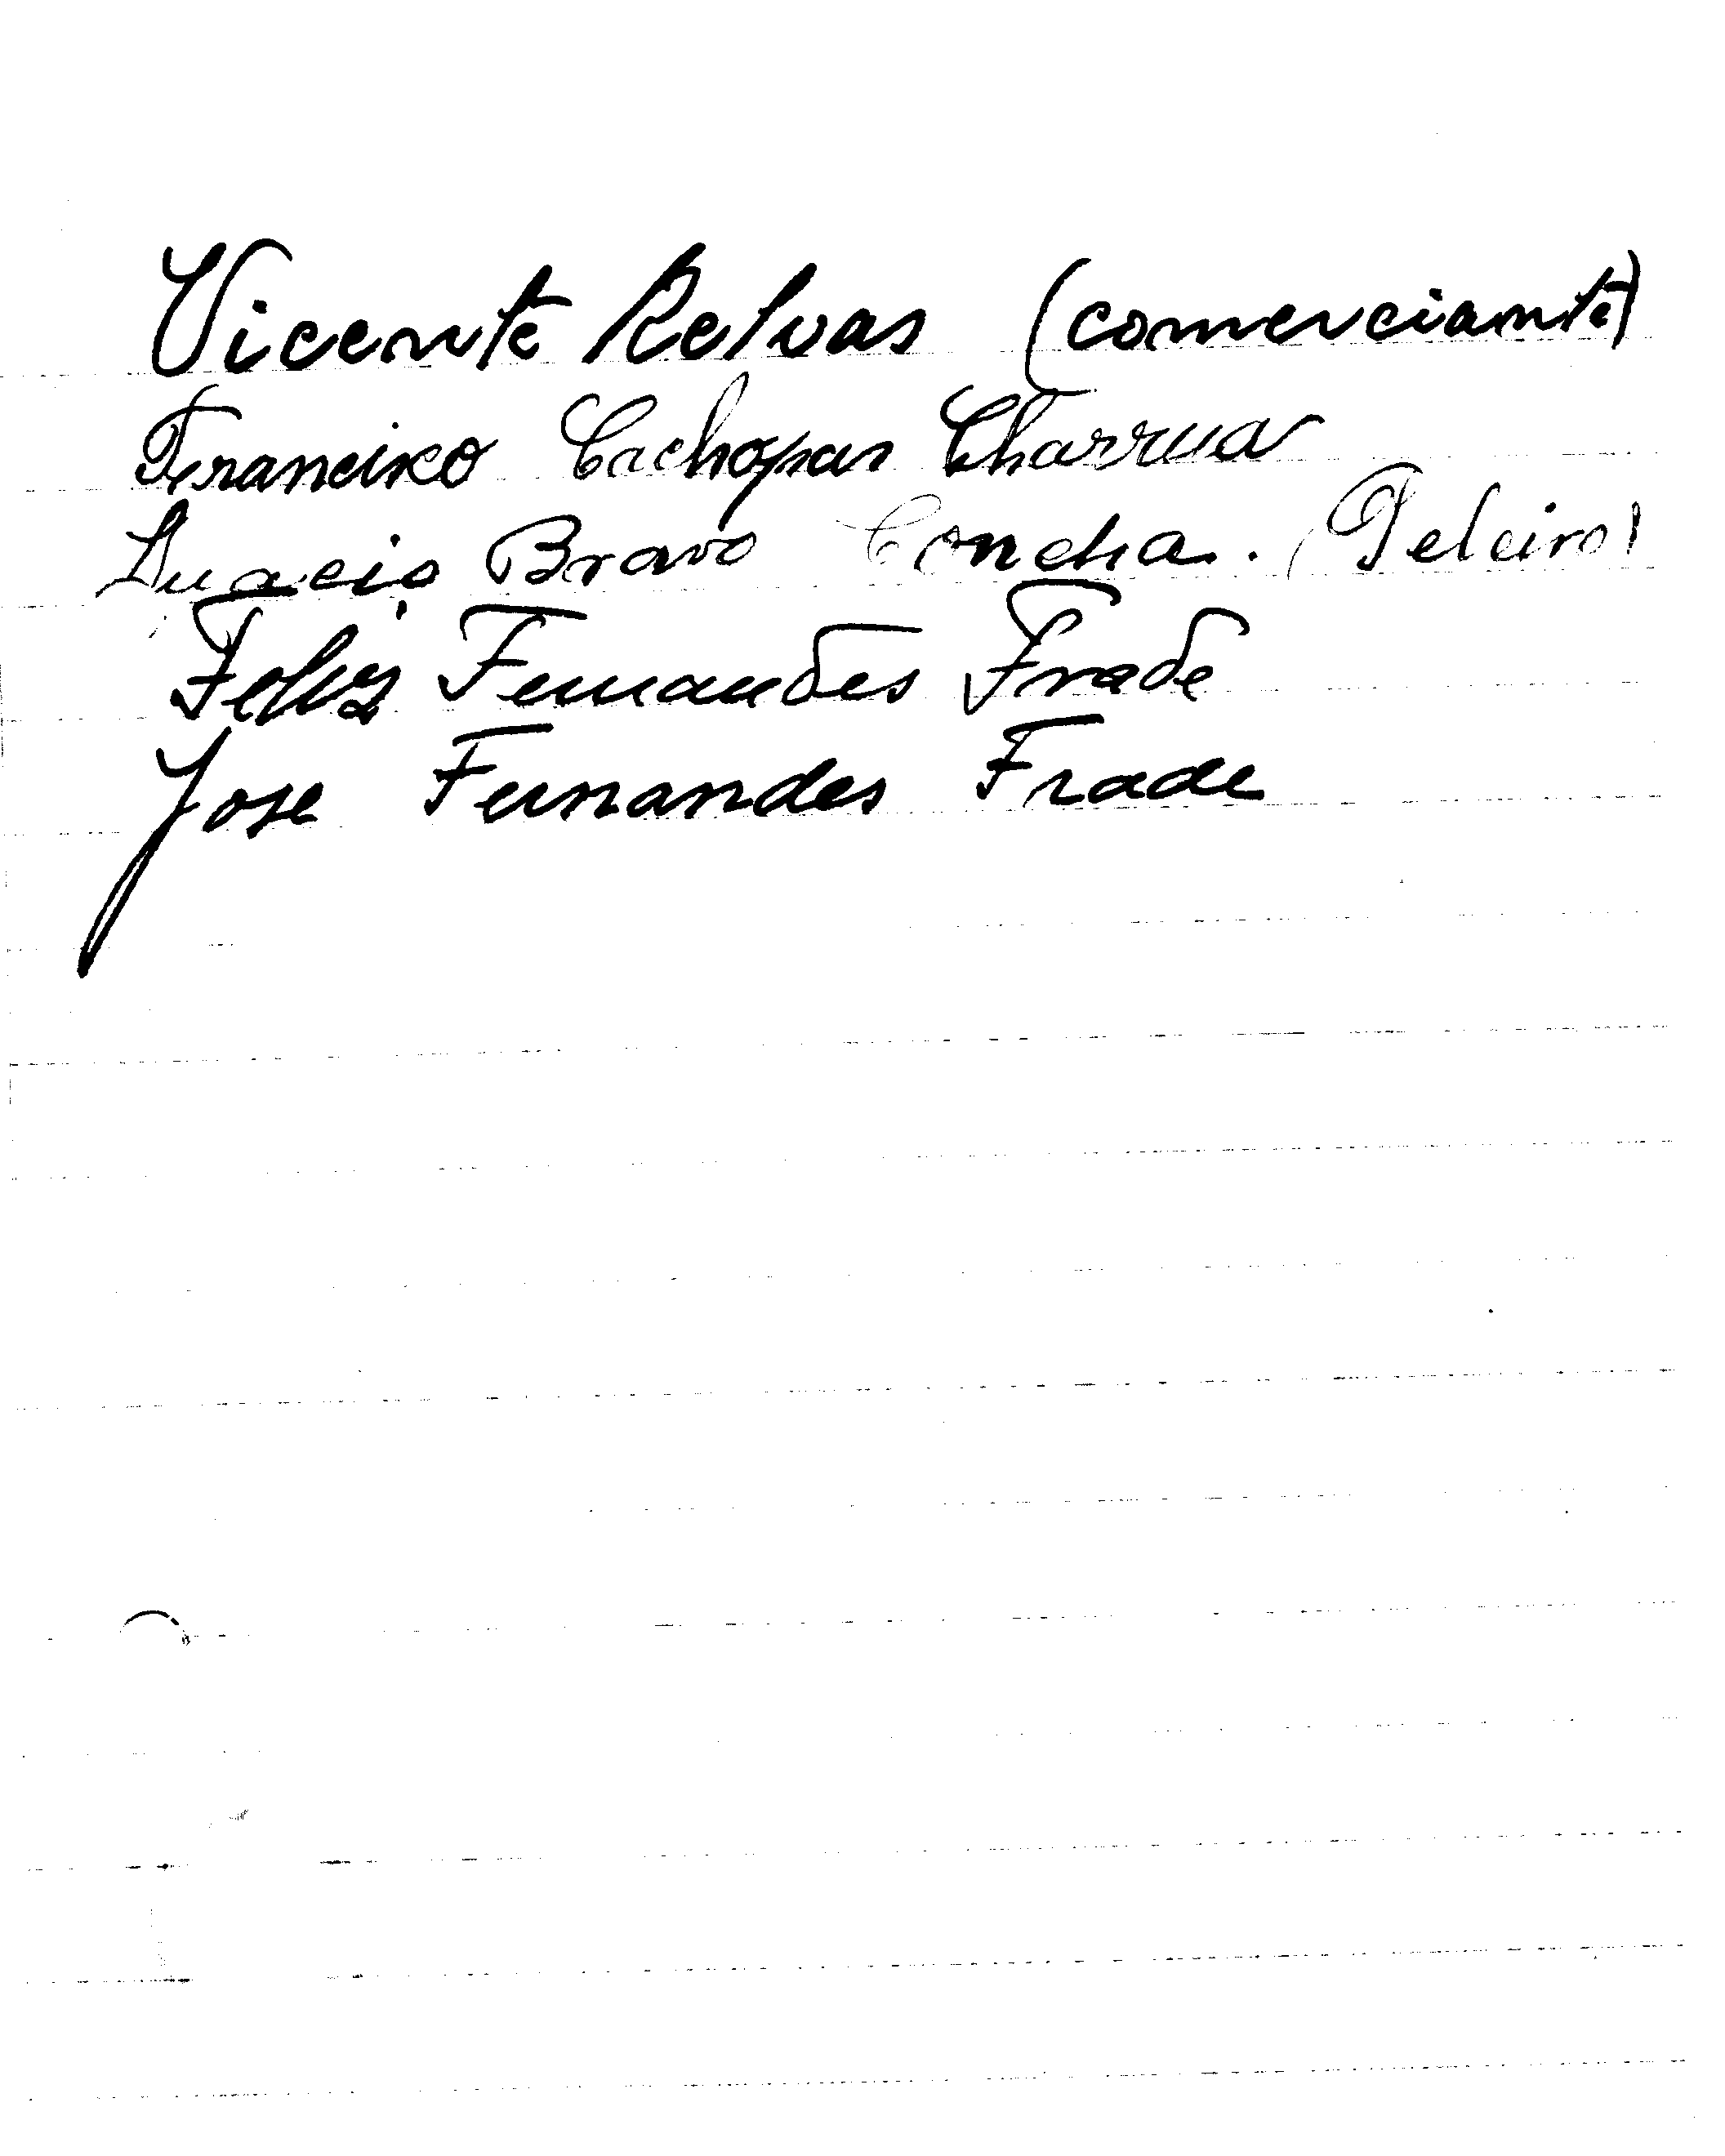 Vicente Relvas (comerciante)
Francisco Cachopas Charrua
Bravo Concha. (Peleiro)
Feliz Fernandes Frade
Jose Fernandes Frade